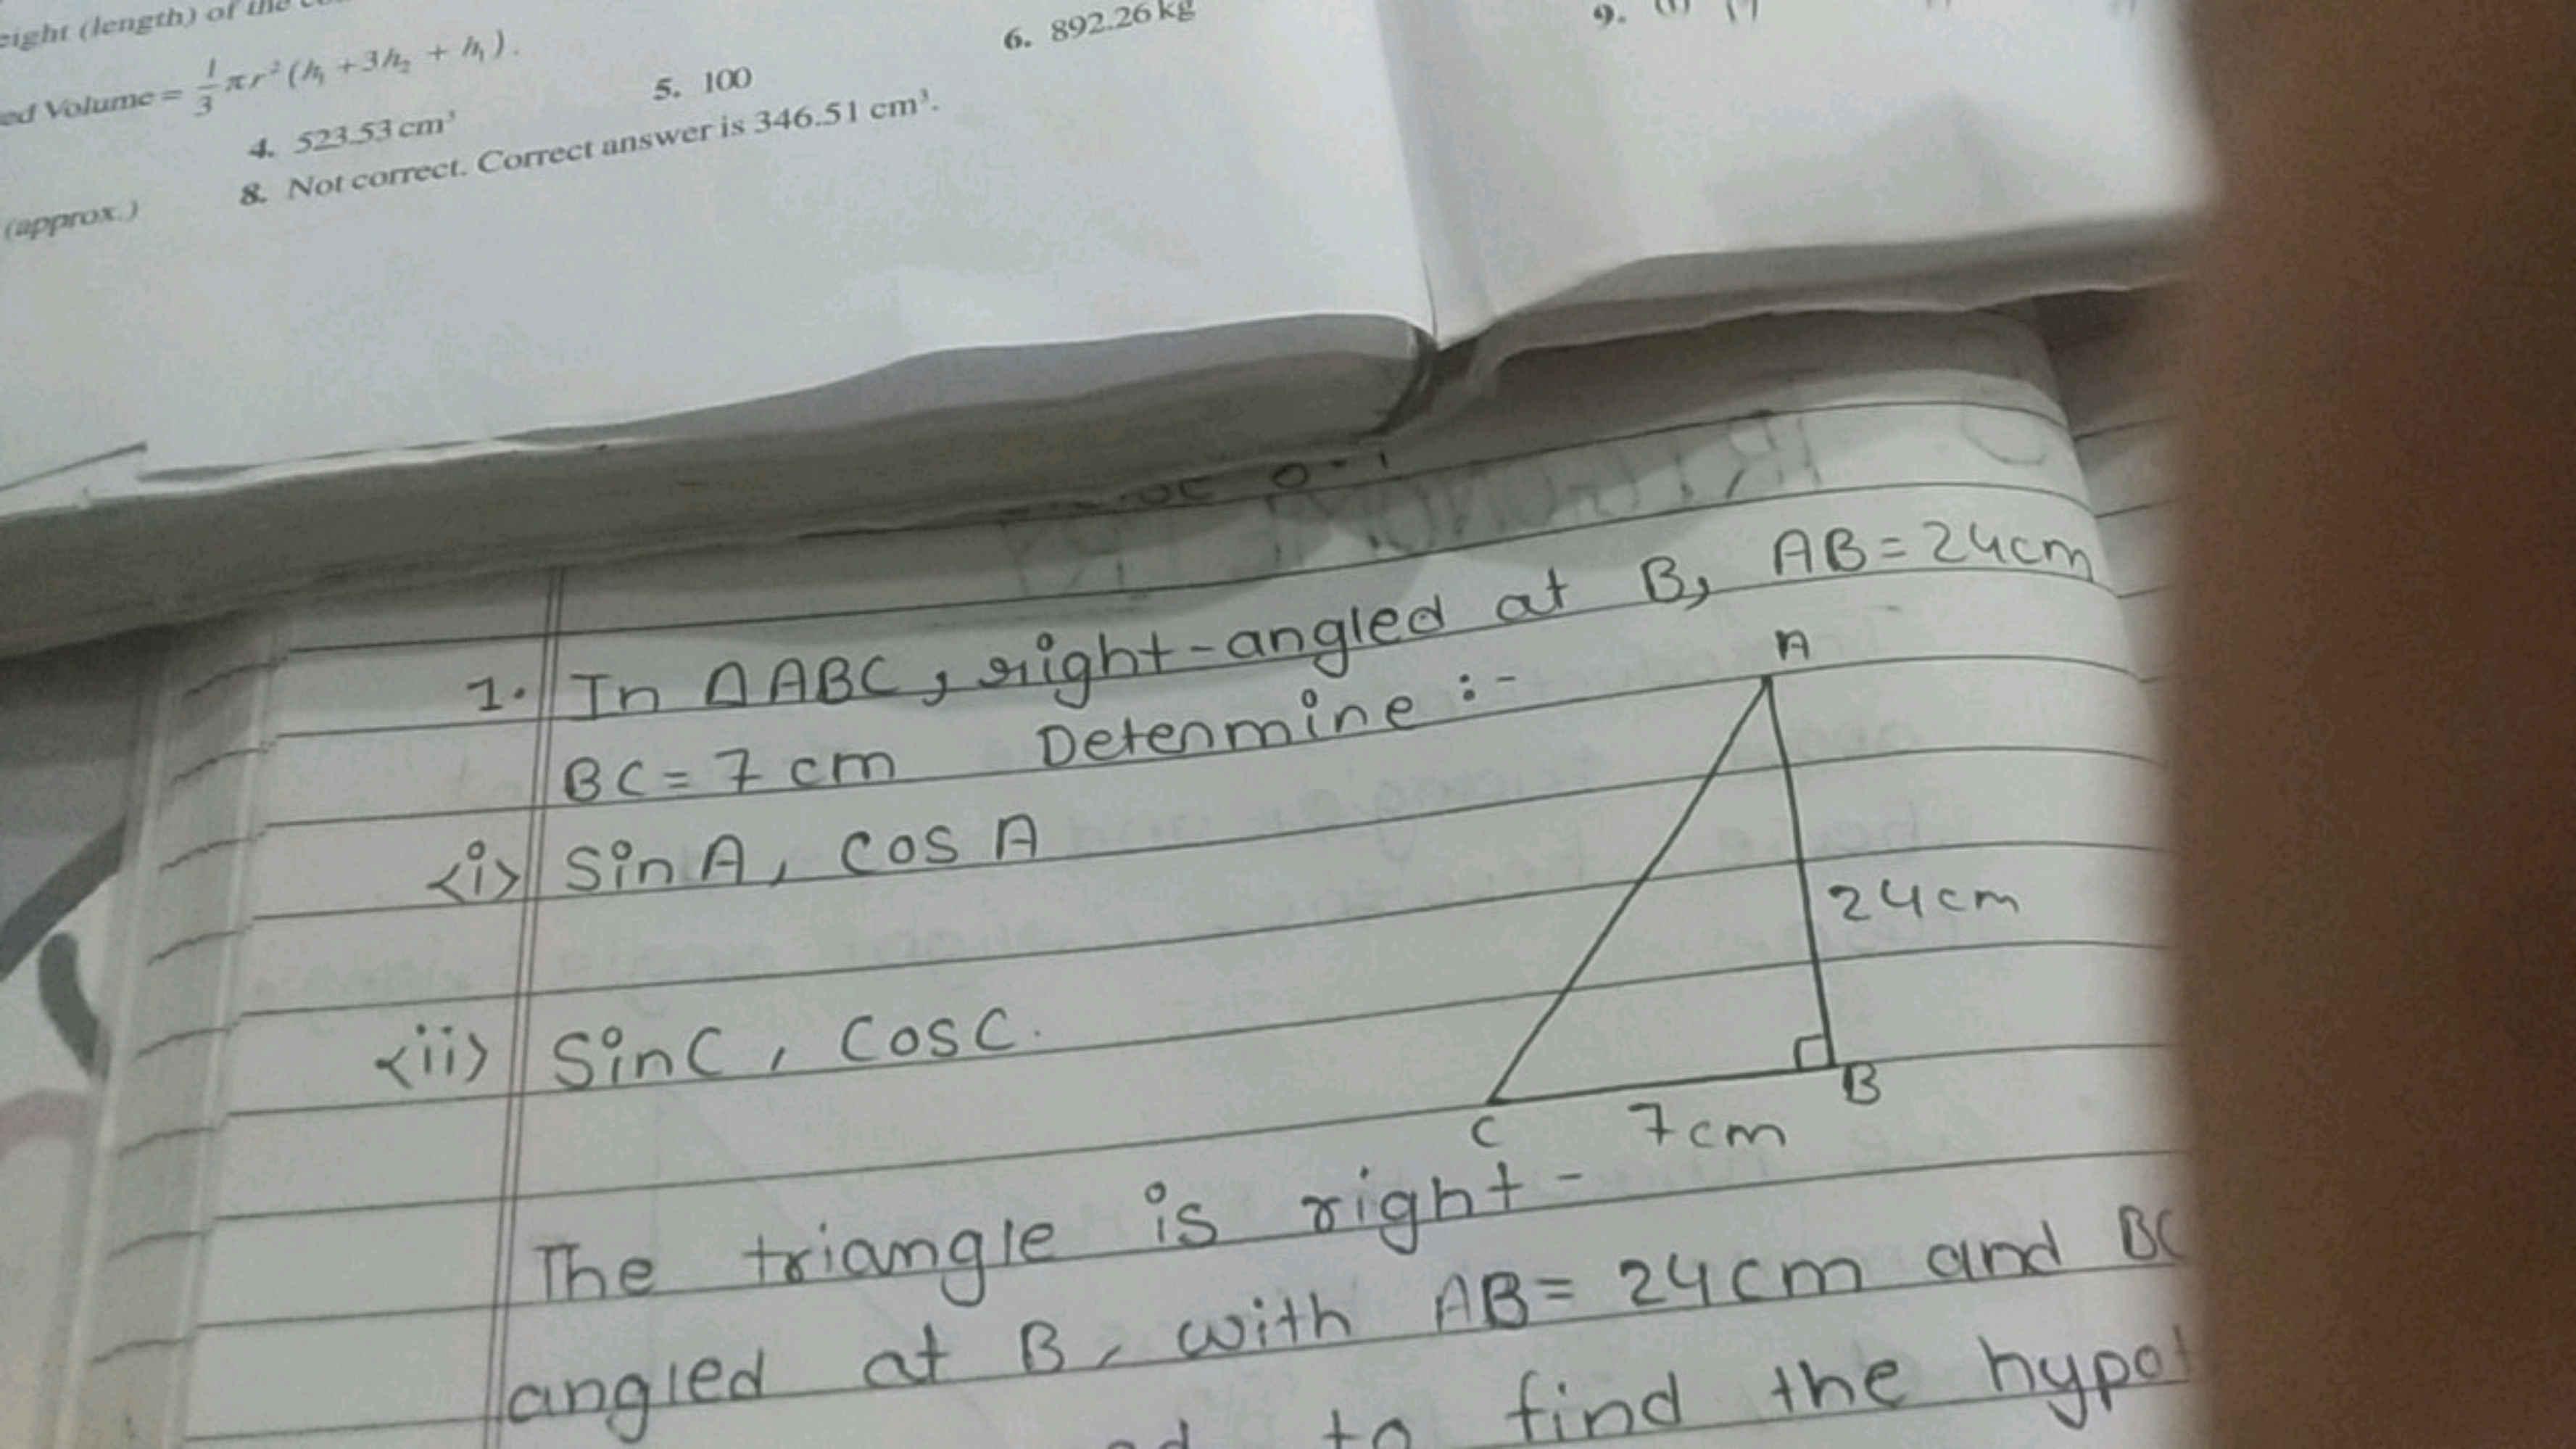 eight (length) of the
ed Volume = 1/3 πr² (h₁ + 3h₂ + h₁).
4. 523.53 cm³
5. 100
6. 892.26 kg
9.
(approx.)
8. Not correct. Correct answer is 346.51 cm³.
1. In ΔABC, right-angled at B, AB = 24cm
BC = 7 cm Detenmine :-
<i> Sin A, cos A
<ii> Sin C, Cos C.
A
24cm
B
C
7cm
The triangle is right-
angled at B, with AB = 24cm and BC
to find the hypot